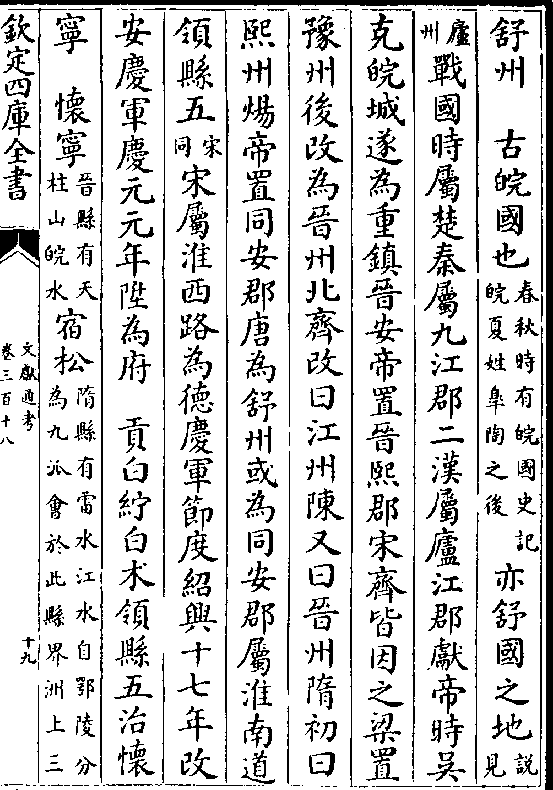 舒州　古皖國也春秋時有皖國史記皖夏姓臯陶之後亦舒國之地說見
廬州戰國時屬楚秦屬九江郡二漢屬廬江郡獻帝時吳
克皖城遂為重鎮晉安帝置晉熙郡宋齊皆因之梁置
豫州後改為晉州北齊改曰江州陳又曰晉州隋初曰
熙州煬帝置同安郡唐為舒州或為同安郡屬淮南道
領縣五宋同宋屬淮西路為德慶軍節度紹興十七年改
安慶軍慶元元年陞為府　貢白紵白术領縣五治懷
寧　懷寧晉縣有天柱山皖水宿松隋縣有雷水江水自鄂陵分為九派會於此縣界洲上三
欽定四庫全書
文獻通考
卷三百十八
十九